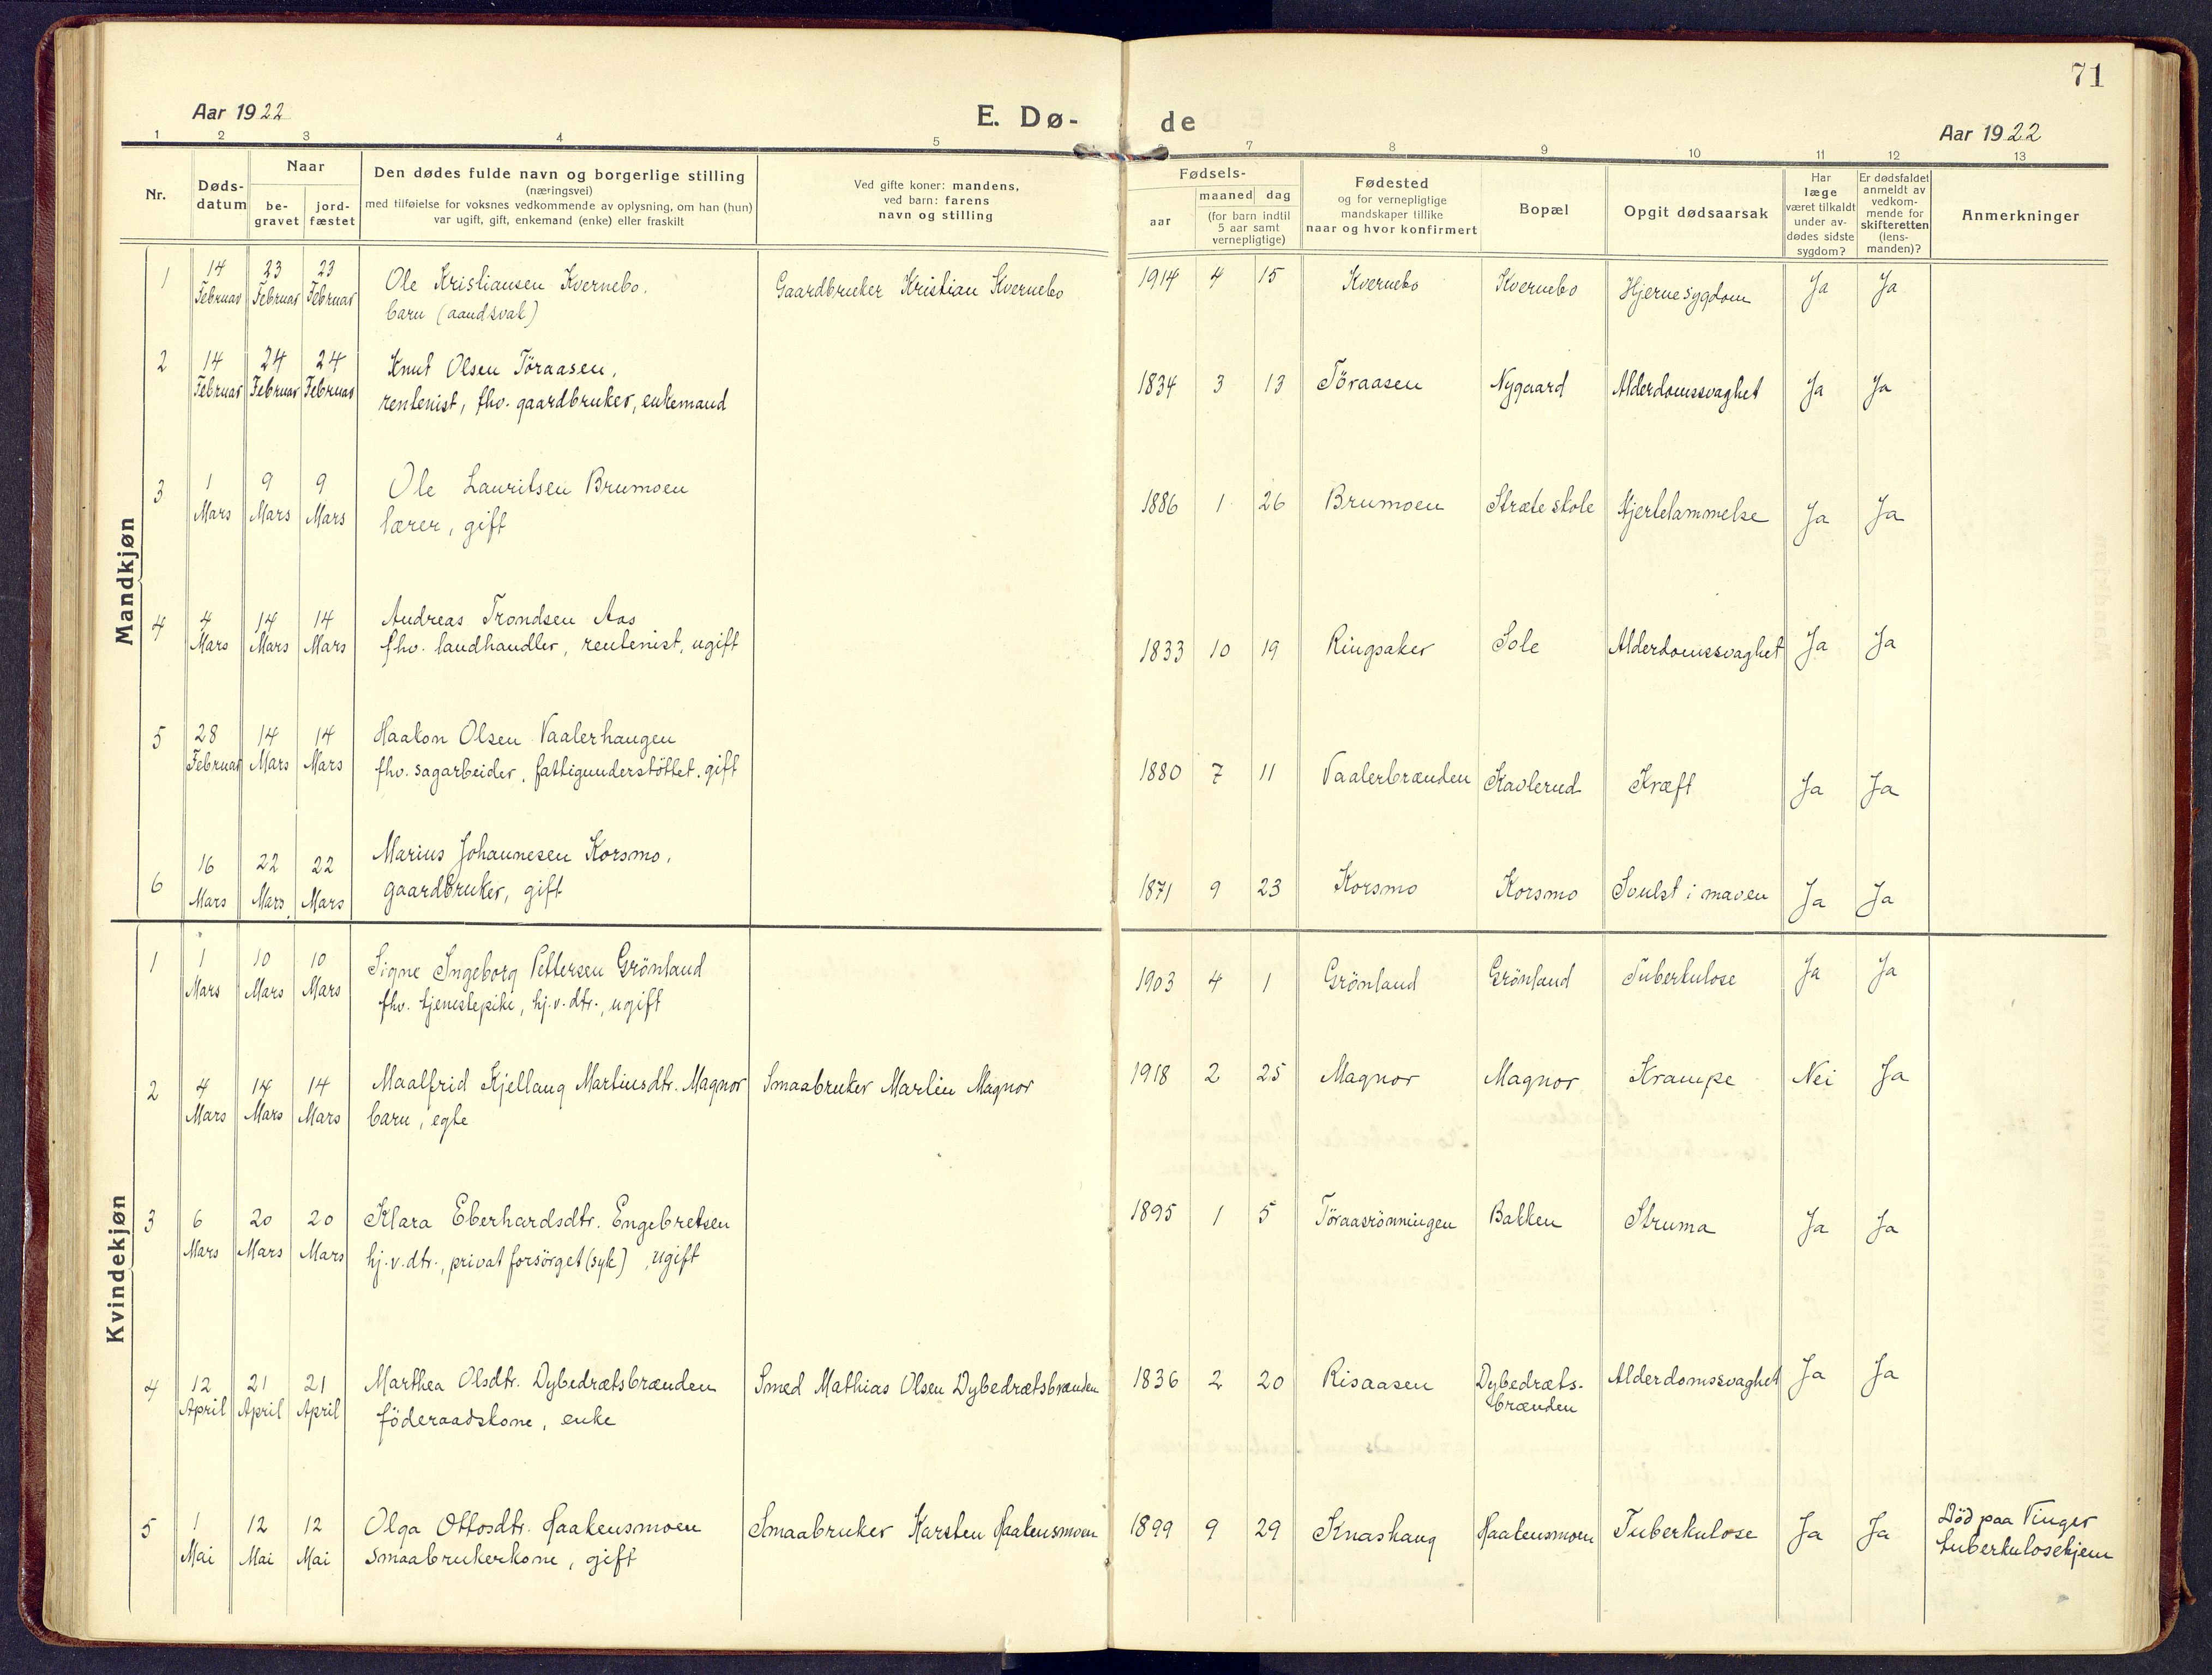 71
Aar 1922
E. Dø-
de
Aar 1922
1 2 3 4 5 6 7 8 9 10 11 12 13
Nr.
Døds-
datum
Naar
be-
gravet
jord-
fæstet
Den dødes fulde navn og borgerlige stilling
(næringsvei)
med tilføielse for voksnes vedkommende av oplysning, om han (hun)
var ugift, gift, enkemand (enke) eller fraskilt
Ved gifte koner: mandens,
ved barn: farens
navn og stilling
Fødsels-
aar
maaned dag
(for barn indtil
5 aar samt
vernepligtige)
Fødested
og for vernepligtige
mandskaper tillike
naar og hvor konfirmert
Bopæl
Opgit dødsaarsak
Har
læge
været tilkaldt
under av-
dødes sidste
sygdom?
Er dødsfaldet
anmeldt av
vedkom-
mende for
skifteretten
(lens-
manden)?
Anmerkninger
Mandkjøn
1 14 Februar 23 Februar 23 Februar Ole Kristiansen Kvernebo. Gaardbruker Kristian Kvernebo 1914 4 15 Kvernebo Kvernebo Hjernesygdom Ja Ja
barn (aandsvak)
2 14 Februar 24 Februar 24 Februar Knut Olsen Töraasen, 1834 3 13 Töraasen Nygaard Alderdomssvaghet Ja Ja
rentenist, fhv. gaardbruker, enkemand
3 1 Mars 9 Mars 9 Mars Ole Lauritsen Brumoen 1886 1 26 Brumoen Stræte skole Hjertelammelse Ja Ja
lærer, gift
4 4 Mars 14 Mars 14 Mars Andreas Trondsen Aas 1833 10 19 Ringsaker Sole Alderdomssvaghet Ja Ja
fhv. landhandler, rentenist, ugift
5 28 Februar 14 Mars 14 Mars Haakon Olsen Vaalerhaugen 1880 7 11 Vaalerbrænden Kavlerud Kræft Ja Ja
fhv. sagarbeider, fattigunderstöttet, gift
6 16 Mars 22 Mars 22 Mars Marius Johannesen Korsmo, 1871 9 23 Korsmo Korsmo Svulst i maven Ja Ja
gaardbruker, gift
Kvindekjøn
1 1 Mars 10 Mars 10 Mars Signe Ingeborg Pettersen Grönland 1903 4 1 Grönland Grönland Tuberkulose Ja Ja
fhv. tjenestepike, hj.v.dtr., ugift
2 4 Mars 14 Mars 14 Mars Maalfrid Kjellaug Martinsdtr. Magnor Smaabruker Martin Magnor 1918 2 25 Magnor Magnor Krampe Nei Ja
barn, egte
3 6 Mars 20 Mars 20 Mars Klara Eberhardsdtr. Engebretsen 1895 1 5 Töraasrönningen Bakken Struma Ja Ja
hj.v.dtr., privat forsörget (syk), ugift
4 12 April 21 April 21 April Marthea Olsdtr. Dybedrætsbrænden Smed Mathias Olsen Dybedrætsbrænden 1836 2 20 Risaasen Dybedræts-
brænden Alderdomssvaghet Ja Ja
föderaadskone, enke
5 1 Mai 12 Mai 12 Mai Olga Ottosdtr. Haakensmoen Smaabruker Karsten Haakensmoen 1899 9 29 Knashaug Haakensmoen Tuberkulose Ja Ja Död paa Vinger
tuberkulosehjem
smaabrukerkone, gift